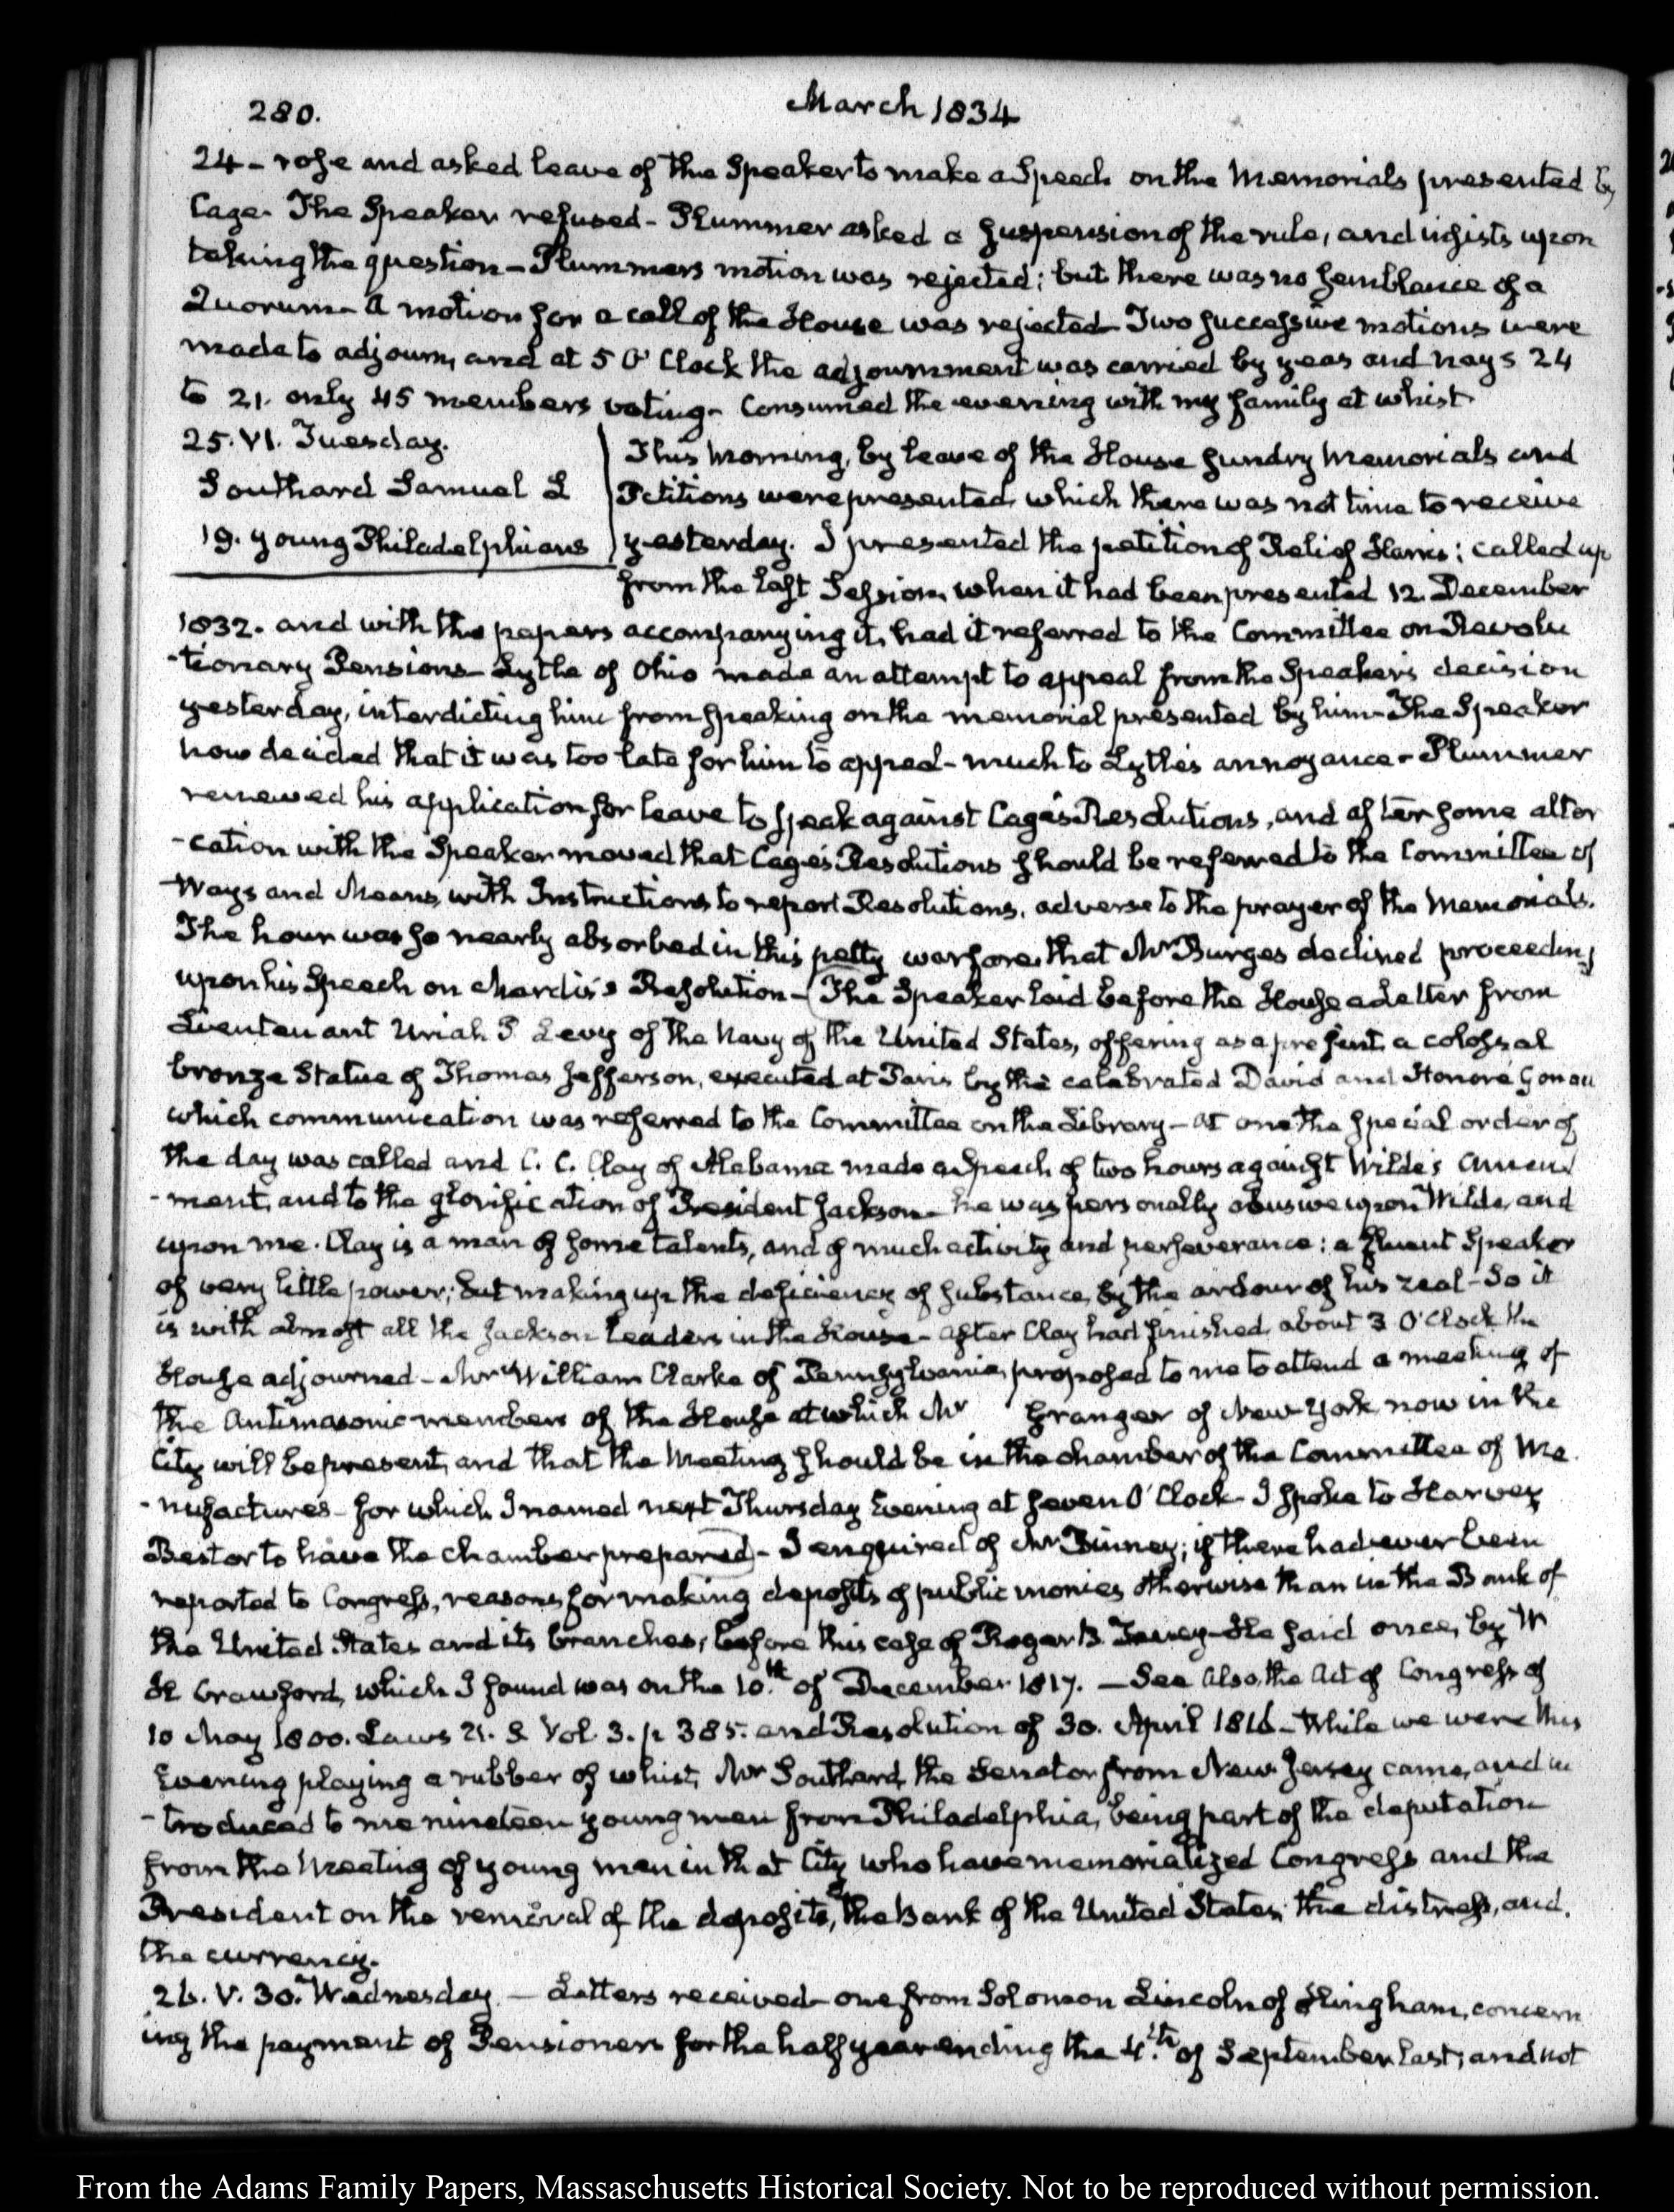 280.
March 1834
24 – rose and asked leave of the Speaker to make a Speech on the Memorials presented by
Cage. The Speaker refused – Plummer asked a suspension of the rule, and insists upon
taking the question – Plummers motion was rejected; but there was no semblance of a
Quorum – A motion for a call of the House was rejected – Two successive motions were
made to adjourn, and at 5 O'Clock the adjournment was carried by yeas and nays 24
to 21. only 45 members voting – Consumed the evening with my family at whist.
25. VI. Tuesday.
Southard Samuel L
19. young Philadelphians
This Morning, by leave of the House sundry Memorials and
Petitions were presented, which there was not time to receive
yesterday. I presented the petition of Relief Harris; called up
from the last Session, when it had been presented 12. December
1832. and with the papers accompanying it, had it referred to the Committee on Revolu
-tionary Pensions – Lytle of Ohio made an attempt to appeal from the Speaker's decision
yesterday, interdicting him from speaking on the memorial presented by him – The Speaker
now decided that it was too late for him to appeal – much to Lytle's annoyance – Plummer
renewed his application for leave to speak against Cage's Resolutions, and after some alter
-cation with the Speaker moved that Cage's Resolutions should be referred to the Committee of
Ways and Means, with Instructions to report Resolutions, adverse to the prayer of the Memorials.
The hour was so nearly absorbed in this petty warfare, that Mr Burges declined proceeding
upon his Speech on Mardis's Resolution – (The Speaker laid before the House a Letter from
Lieutenant Uriah P. Levy of the Navy of the United States, offering as a present, a colossal
bronze Statue of Thomas Jefferson, executed at Paris by the celebrated David and Honoré Gonau
which communication was referred to the Committee on the Library – at one the special order of
the day was called and C. C. Clay of Alabama made a Speech of two hours against Wilde's amend
-ment, and to the glorification of President Jackson – he was personally abusive upon Wilde, and
upon me. Clay is a man of some talents, and of much activity and perseverance: a fluent Speaker
of very little power; but making up the deficiency of substance, by the ardour of his zeal – So it
is with almost all the Jackson Leaders in the House – After Clay had finished, about 3 O'Clock the
House adjourned – Mr William Clarke of Pennsylvania, proposed to me to attend a meeting of
the Antimasonic members of the House at which Mr Granger of New York now in the
City will be present, and that the Meeting should be in the chamber of the Committee of Ma
-nufactures – for which I named next Thursday Evening at seven O'Clock – I spoke to Harvey
Bestor to have the chamber prepared) – I enquired of Mr Binney; if there had ever been
reported to Congress, reasons for making deposits of public monies otherwise than in the Bank of
the United States and its branches, before this case of Roger B. Taney – He said once, by W
H Crawford, which I found was on the 10th of December 1817. – See also, the Act of Congress of
10 May 1800. Laws U. S Vol. 3. p 385. and Resolution of 30. April 1816 – While we were this
Evening playing a rubber of whist, Mr Southard, the Senator from New Jersey came, and in
-troduced to me nineteen young men from Philadelphia, being part of the deputation
from the Meeting of young men in that City who have memorialized Congress and the
President on the removal of the deposits, the Bank of the United States, the distress, and.
the currency.
26. V. 30. Wednesday – Letters received – one from Solomon Lincoln of Hingham, concern
ing the payment of Pensioners for the half year ending the 4th of September last; and not
From the Adams Family Papers, Massachusetts Historical Society. Not to be reproduced without permission.